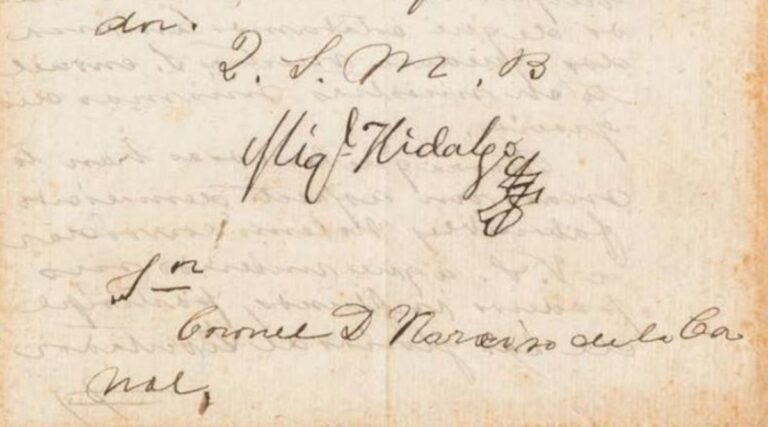 dor.
Q. S. M. B
Migl. Hidalgo
Sor
Coronel D Narciso de la Ca
nal,